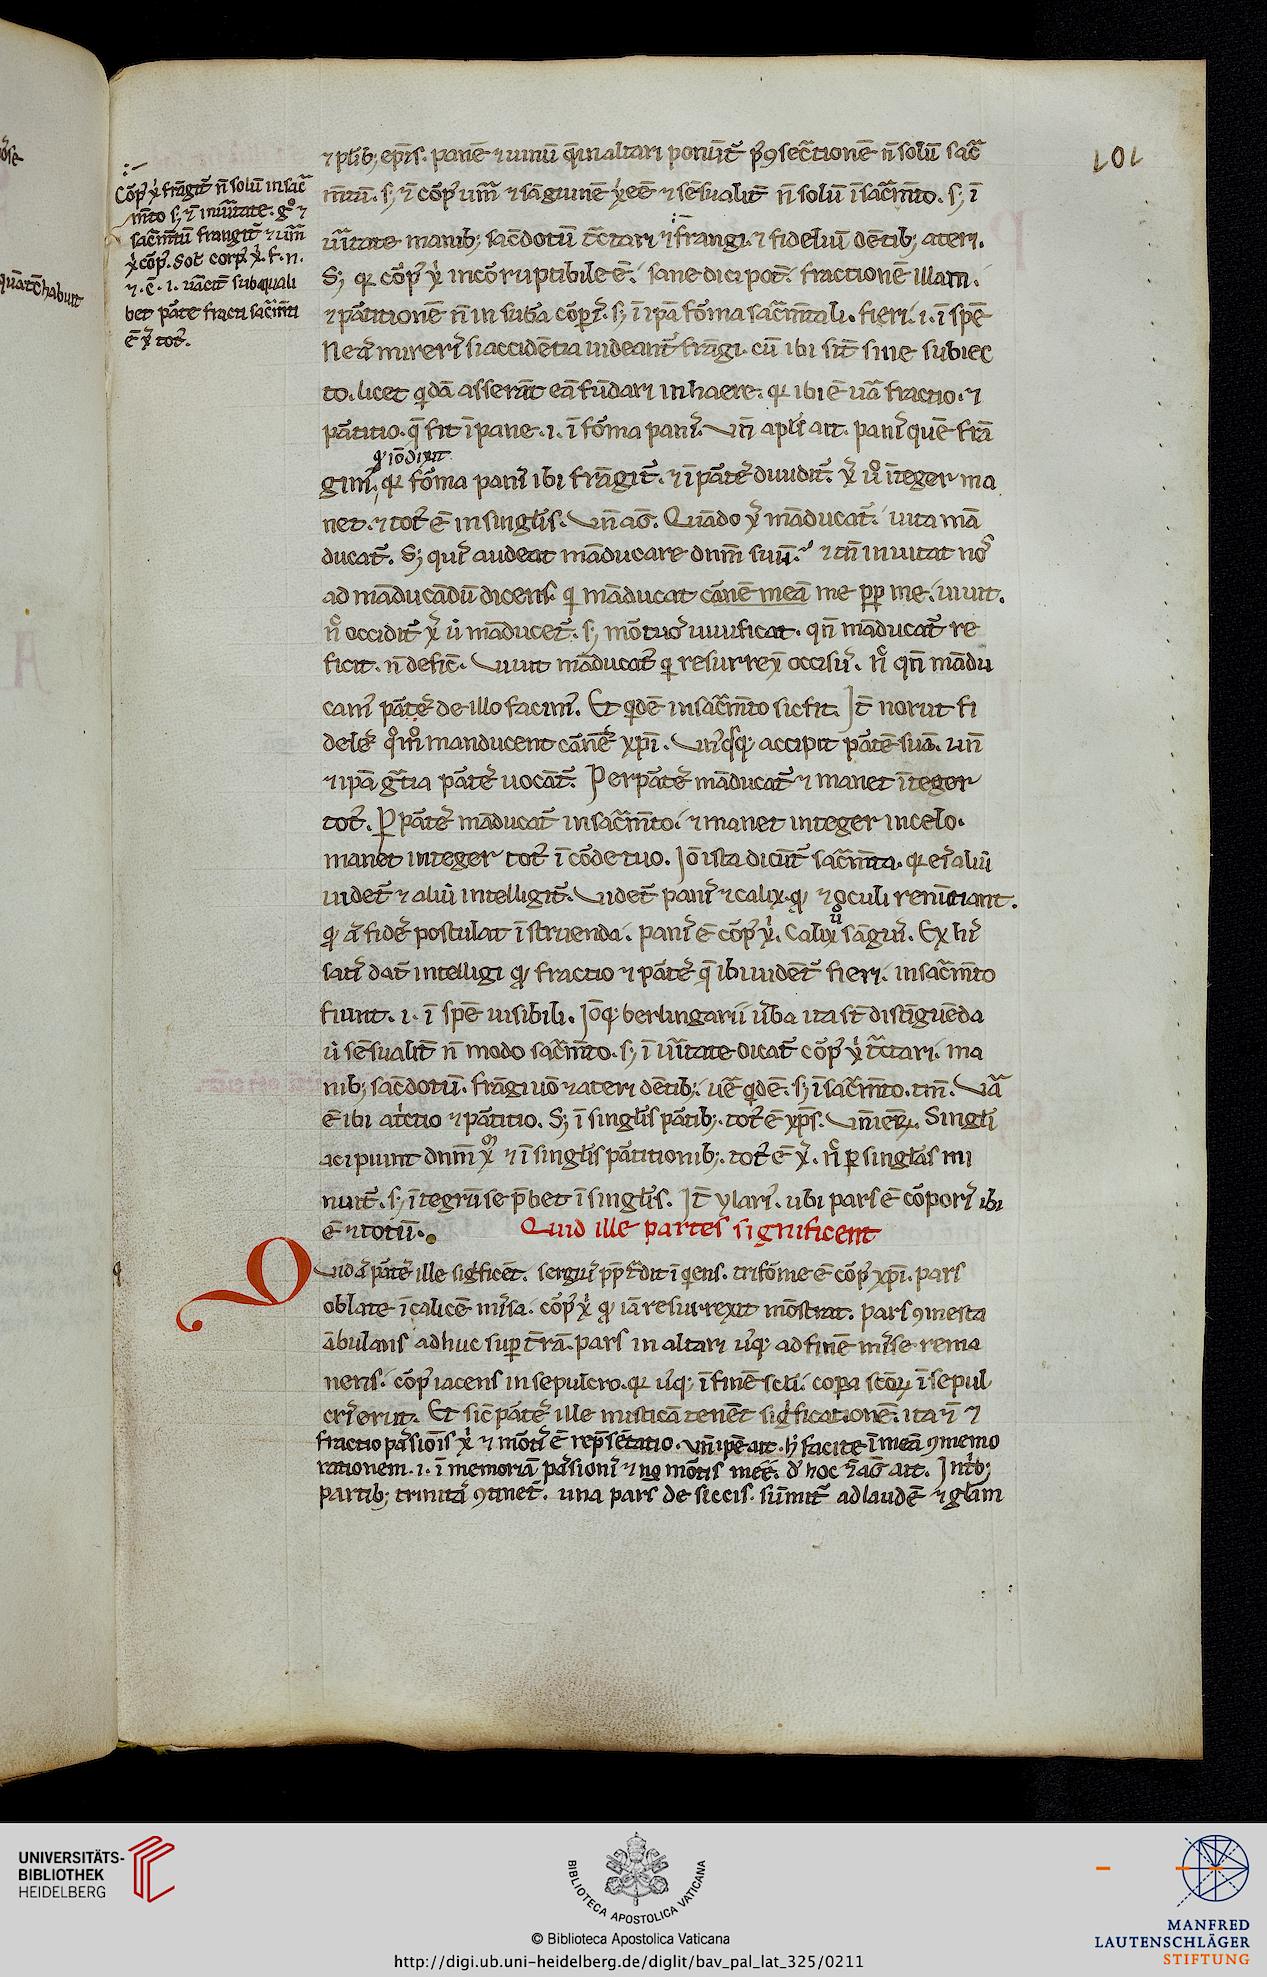 101
Cōp᷒ x̓ frāgit᷒ n̄ solū in sac̄
m̄to sȝ ⁊ ī in ūitate. gº ⁊
sac̄m̄tū frangit᷒ ⁊ um̄
x̓ cōp᷒. Sot᷒ corp᷒ x̓. f. n.
⁊. ē. i. uācit sub quali
bet pāte fracti sac̄m̄ti
ē x̓ tot᷒.
⁊ plib; ep̄is. panē ⁊ uinū q̄ in altari ponūt᷒ p᷒ ꝯsec̄tionē n̄ solū sac̄
m̄tū. sȝ ⁊ ī cōp᷒ um̄ ⁊ sāguinē x̓ eē ⁊ sēsualit̄ n̄ solū ī sac̄m̄to. sȝ ī
ūitate manib; sac̄dotū tc̄tari ⁊ frangi. ⁊ fideliū dētib; ateri.
Sȝ qr cōp᷒ x̓ incōruptibile ē. sane dici pot̄. fractionē illam.
⁊ pātitionē n̄ in sub̄a cōp̄is. sȝ ī ipā fōma sac̄m̄tali. fieri. i. ī spē
Ne ā mirer᷒ si accidētia uideant᷒ frāgi. cū ibi sīt sine subiec
to. licet qidā asserāt eā fūdari in haere. qr ibi ē uā fractio. ⁊
pātitio. q̄ fit ī pane. i. ī fōma pan᷒. Vn̄ apl᷒s ait. pan᷒ quē frā
qr iō dixit
gim᷒, qr fōma pan᷒ ibi frāgit᷒. ⁊ ī pātes diuidit᷒. x̓ uº īteger ma
net. ⁊ tot᷒ ē in singlis. Vn̄ aḡ. Quādo x̓ māducat᷒. uita mā
ducat᷒. Sȝ qui᷒ audeat māducare dn̄m suū. ⁊ tn̄ inuitat nos
ad māducādū dicens. qi māducat cānē meā me pp me. uiuit.
Nº occidit᷒ x̓ ū māducet᷒. sȝ mōtuos uiuificat. qn̄ māducat᷒ re
ficit. n̄ defic̄. Viuit māducat᷒ qi resurrex̄ occis᷒. Nº qn̄ mādu
cam᷒ pātes de illo facim᷒. Et qidē in sac̄m̄to sic fit. It̄ norut fi
deles qºm manducent cānē xp̄i. Vn᷒qsq; accipit pātē suā. un̄
⁊ ipā gr̄tia pātes uocāt᷒. Per pātes māducat᷒ ⁊ manet īteger
tot᷒. P pātes māducat᷒ in sac̄m̄to. ⁊ manet integer in celo.
manet integer tot᷒ ī cōde tuo. Iō ista dicūt᷒ sac̄m̄ta. qr ei᷒ aliū
uidet᷒ ⁊ aliū intelligit᷒. Videt᷒ pan᷒ ⁊ calix. qº ⁊ oculi renūtiant.
qº ā fides postulat īstruenda. pan᷒ ē cōp᷒ x̓. Calix sāguis. Ex hi᷒
sati᷒ dat᷒ intelligi qº fractio ⁊ pātes q̄ ibi uidēt᷒ fieri. in sac̄m̄to
fiunt. i. ī spē uisibili. Iōq; berlingarii ūba ita st̄ distīguēda
ū sēsualit̄ n̄ modo sac̄m̄to. sȝ ī ūitate dicat᷒ cōp᷒ x̓ tc̄tari. ma
nib; sac̄dotū. frāgi uō ⁊ ateri dētib;. uē qidē. sȝ ī sac̄m̄to. tm̄. Va
ē ibi atc̄tio ⁊ pātitio. Sȝ ī singlis pātib;. tot᷒ ē xp̄s. Singli
acipiunt dn̄m x̓ ⁊ ī singlis pātitionib;. tot᷒ ē x̓. nº p singlas mi
nuit᷒. sȝ ītegrū se p̄bet ī singlis. It̄ ylari᷒. ubi pars ē cōpor᷒ ibi
ē ⁊ totū.
Quid ille partes significent
Quid ā pātes ille sigficēt. sergius pp t᷒dit īqiens. trifōme ē cōp᷒ xp̄i. pars
oblate ī calicē misa. cōp᷒ x̓ qº iā resurrexit mōstrat. pars ꝯmesta
ābulans adhuc sup t̄rā. pars in altari usq; ad finē mise rema
nens. cōp᷒ iacens in sepulcro. qr usq; ī finē scli. copa scōꝝ ī sepul
cris erut. Et sic pātes ille misticā tenēt sigficationē. ita ⁊
fractio pasionis x̓ ⁊ mōtis ē rep̄sētatio. Vn̄ ipē ait. h᷒ facite ī meā ꝯmemo
rationem. i. ī memoriā pasionis ⁊ mōtis mee. d hoc aḡ ait. Int̄b;
partib; trinita᷒ ꝯtinet᷒. una pars de siccis. sūmit᷒ ad laudē ⁊ glam
UNIVERSITÄTS-
BIBLIOTHEK
HEIDELBERG
BIBLIOTECA APOSTOLICA VATICANA
© Biblioteca Apostolica Vaticana
http://digi.ub.uni-heidelberg.de/diglit/bav_pal_lat_325/0211
MANFRED
LAUTENSCHLÄGER
STIFTUNG